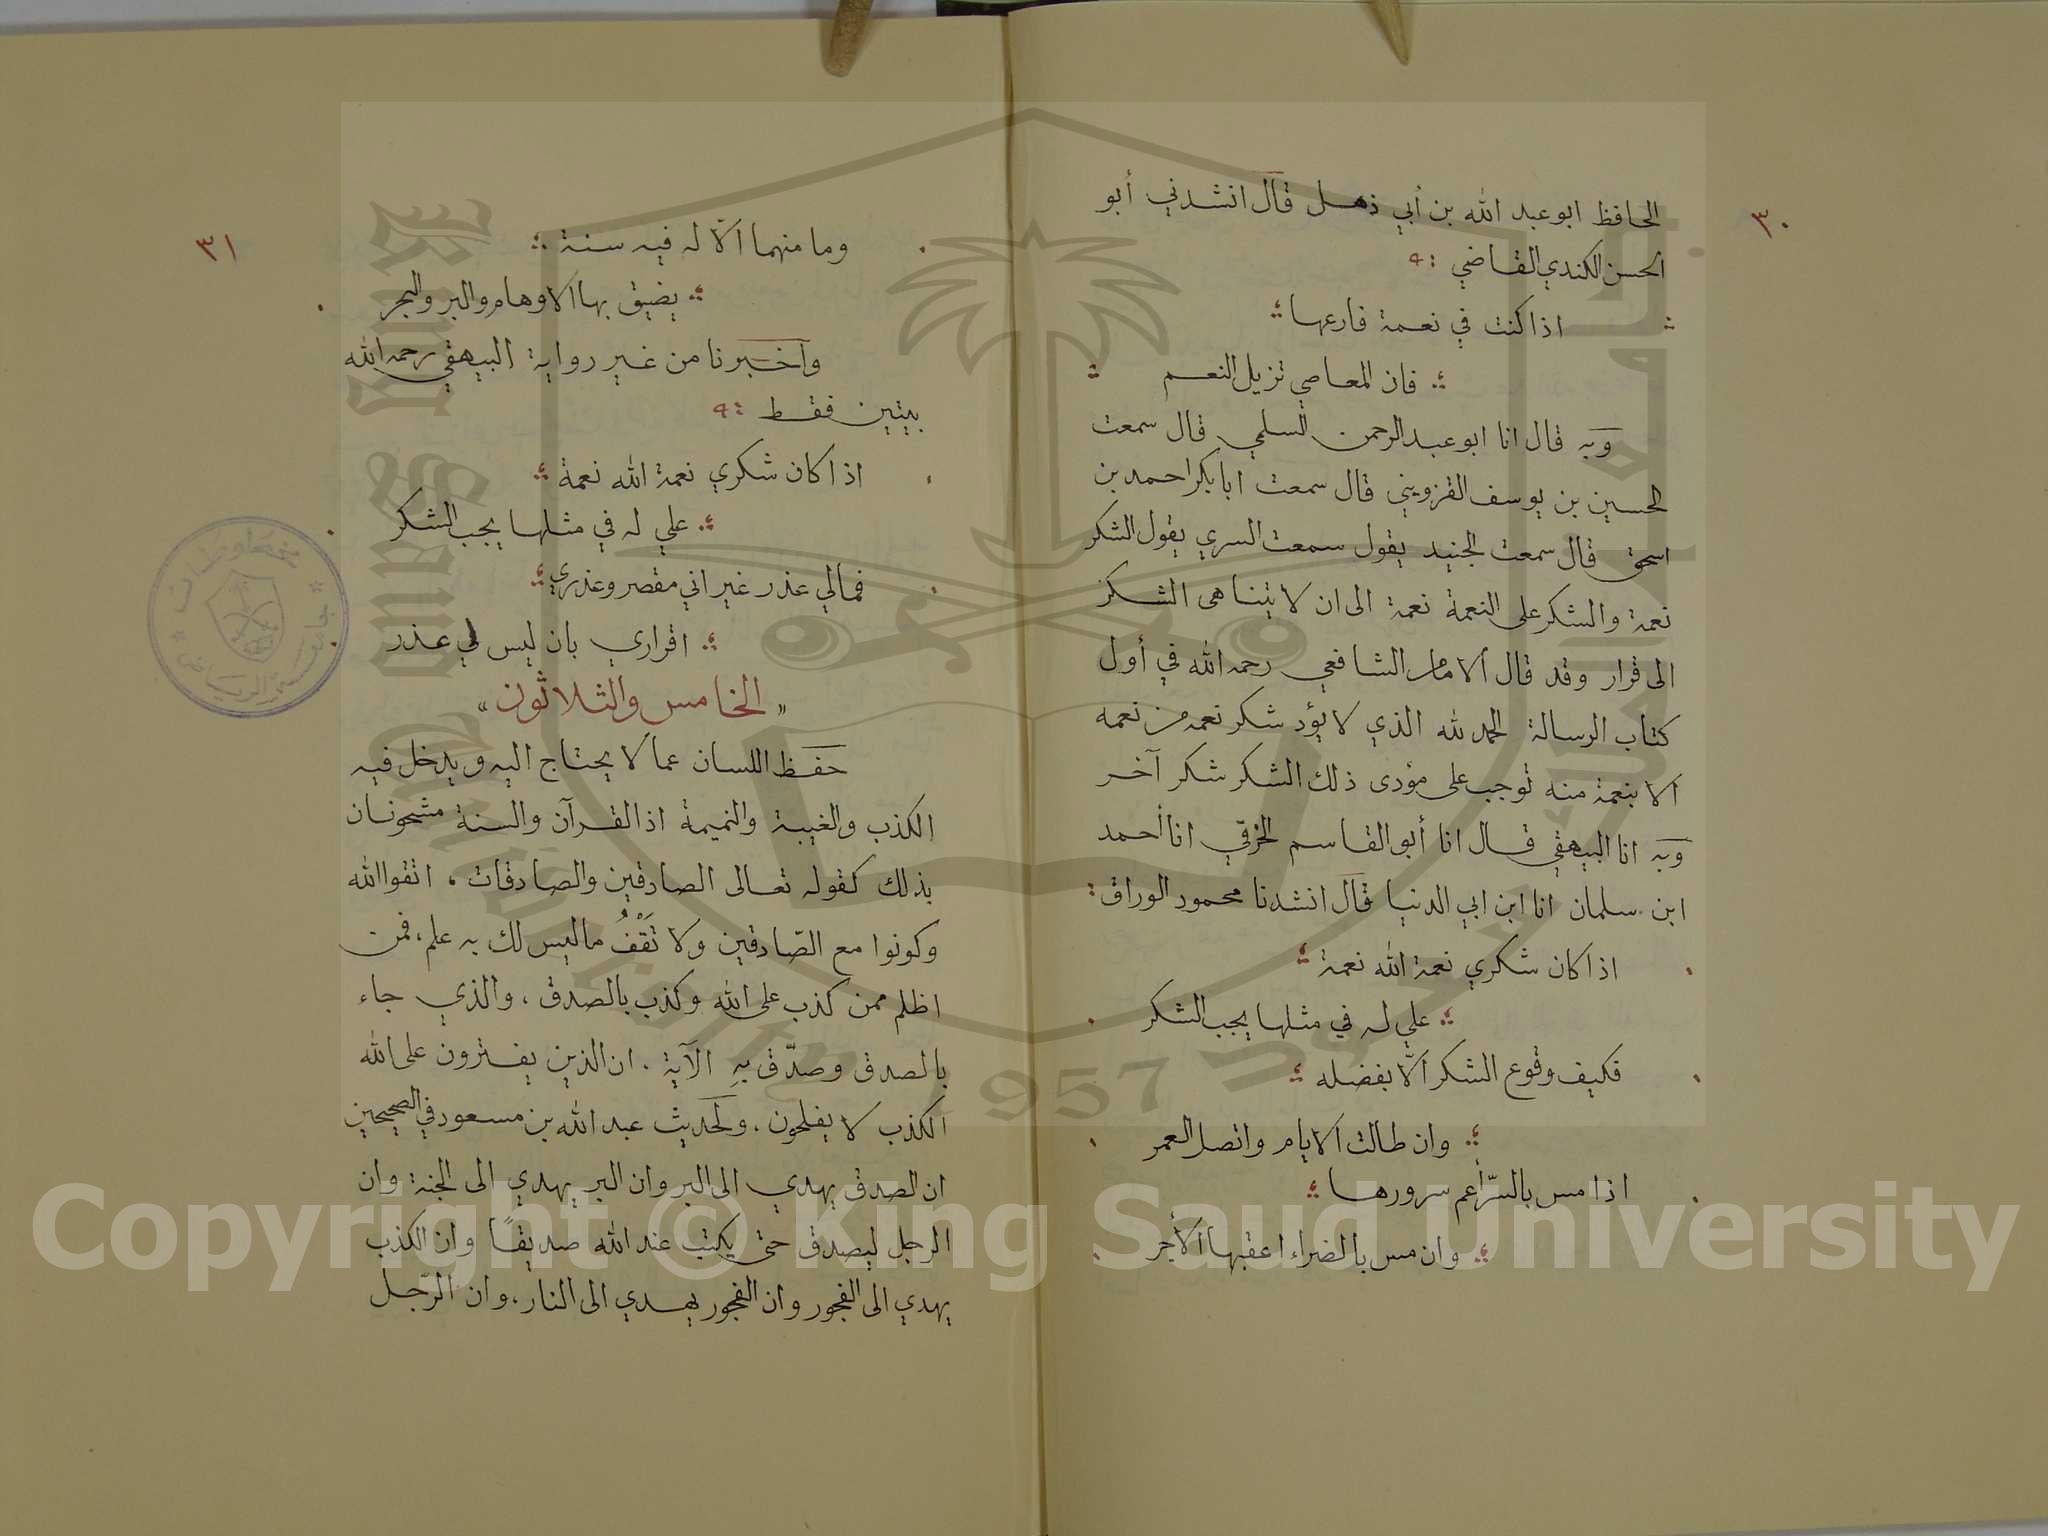 ٣٠
الحافظ ابو عبد الله بن أبي ذهل قال انشدني أبو
الحسن الكندي القاضي
اذا كنت في نعمة فارعها
فان المعاصي تزيل النعم
وبه قال انا ابو عبد الرحمن السلمي قال سمعت
الحسين بن يوسف القزويني قال سمعت ابا بكر احمد بن
اسحق قال سمعت الجنيد يقول سمعت السري يقول الشكر
نعمة والشكر على النعمة نعمة الى ان لا يتناهى الشكر
الى قرار وقد قال الامام الشافعي رحمه الله في أول
كتاب الرسالة الحمد لله الذي لا يؤد شكر نعمه من نعمه
الا بنعمة منه توجب على مؤدى ذلك الشكر شكر آخر
وبه انا البيهقي قال انا أبو القاسم الخرقي انا أحمد
ابن سلمان انا ابن ابي الدنيا قال انشدنا محمود الوراق
اذا كان شكري نعمة الله نعمة
علي له في مثلها يجب الشكر
فكيف وقوع الشكر الا بفضله
وان طالت الايام واتصل العمر
اذا مس بالسرّاعم سرورها
وان مس بالضراء اعقبها الأجر
٣١
وما منهما الّا له فيه سنة
يضيق بها الاوهام والبر والبحر
وأخبرنا من غير رواية البيهقي رحمه الله
بيتين فقط
اذا كان شكري نعمة الله نعمة
علي له في مثلها يجب الشكر
فمالي عذر غير اني مقصر وعذري
اقراري بان ليس لي عذر
« الخامس والثلاثون »
حفظ اللسان عما لا يحتاج اليه ويدخل فيه
الكذب والغيبة والنميمة اذ القرآن والسنة مشحونان
بذلك كقوله تعالى الصادقين والصادقات ، اتقوا الله
وكونوا مع الصّادقين ولا تَقْفُ ما ليس لك به علم ، فمن
اظلم ممن كذب على الله وكذب بالصدق ، والذي جاء
بالصدق وصدّق بهِ الآية . ان الذين يفترون على الله
الكذب لا يفلحون ، ولحديث عبد الله بن مسعود في الصحيحين
ان الصدق يهدي الى البر وان البر يهدي الى الجنة وان
الرجل ليصدق حتى يكتب عند الله صديقًا وان الكذب
يهدي الى الفجور وان الفجور يهدي الى النار ، وان الرّجل
مخطوطات
جامعة الرياض
King Saud University
1957
Copyright © King Saud University